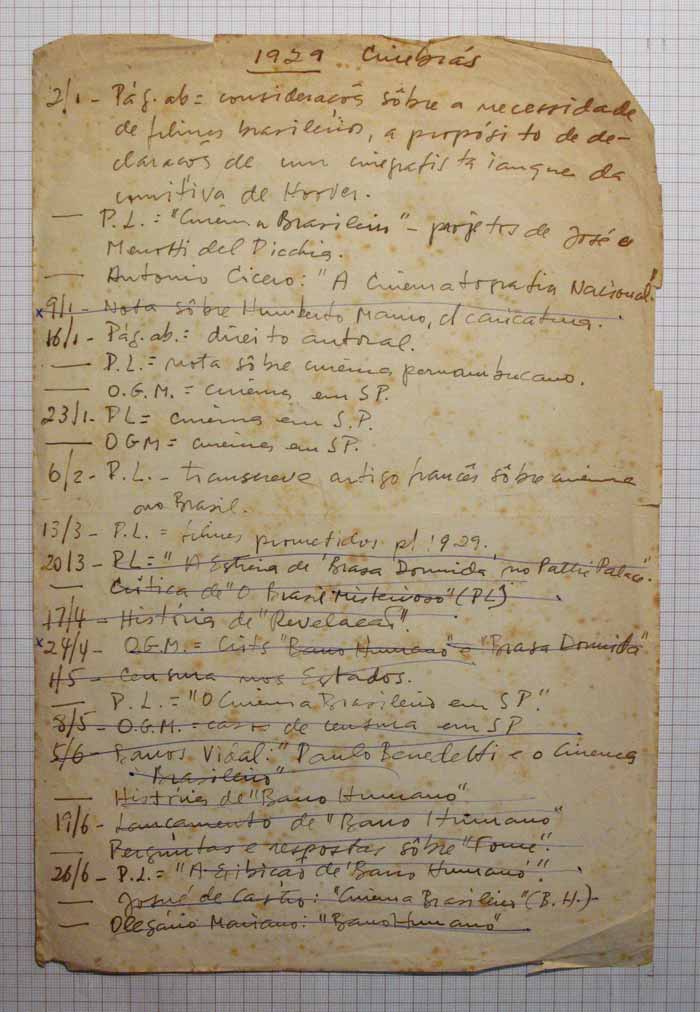 1929 Cinebrás
2/1 - Pág. ab = consideracōs sôbre a necessidade
de filmes brasileiros, a propósito de de-
claracōs de um cinegrafista ianque da
comitiva de Hoover.
— P.L. = "Cinema Brasileiro" - projetos de José e
Menotti del Picchia.
— Antonio Cicero: "A Cinematografia Nacional".
x 9/1 - Nota sôbre Humberto Mauro, c/ caricatura.
16/1 - Pág. ab. = direito autoral.
— P.L. = nota sôbre cinema pernambucano.
— O.G.M. = cinema em SP.
23/1 - PL = cinema em S.P.
— OGM = cinema em SP.
6/2 - P.L. - transcreve artigo francês sôbre cinema
no Brasil.
13/3 - P.L. = filmes prometidos p/ 1929.
20/3 - PL = "A Estréia de 'Brasa Dormida' no Pathé Palace".
— Crítica de "O Brasil Misterioso" (PL)
17/4 - História de "Revelação".
x 24/4 - O.G.M. = "Barro Humano" e "Brasa Dormida"
1/5 - Censura nos Estados.
— P.L. = "O Cinema Brasileiro em SP."
8/5 - O.G.M. = caso de censura em SP
5/6 - Barros Vidal: "Paulo Benedetti e o Cinema
Brasileiro"
— História de "Barro Humano"
19/6 - Lançamento de "Barro Humano"
— Perguntas e respostas sôbre "Fome".
26/6 - P.L. = "A Exibicão de 'Barro Humano'."
— Josué de Castro: "Cinema Brasileiro" (B.H.) -
— Olegário Mariano: "Barro Humano"